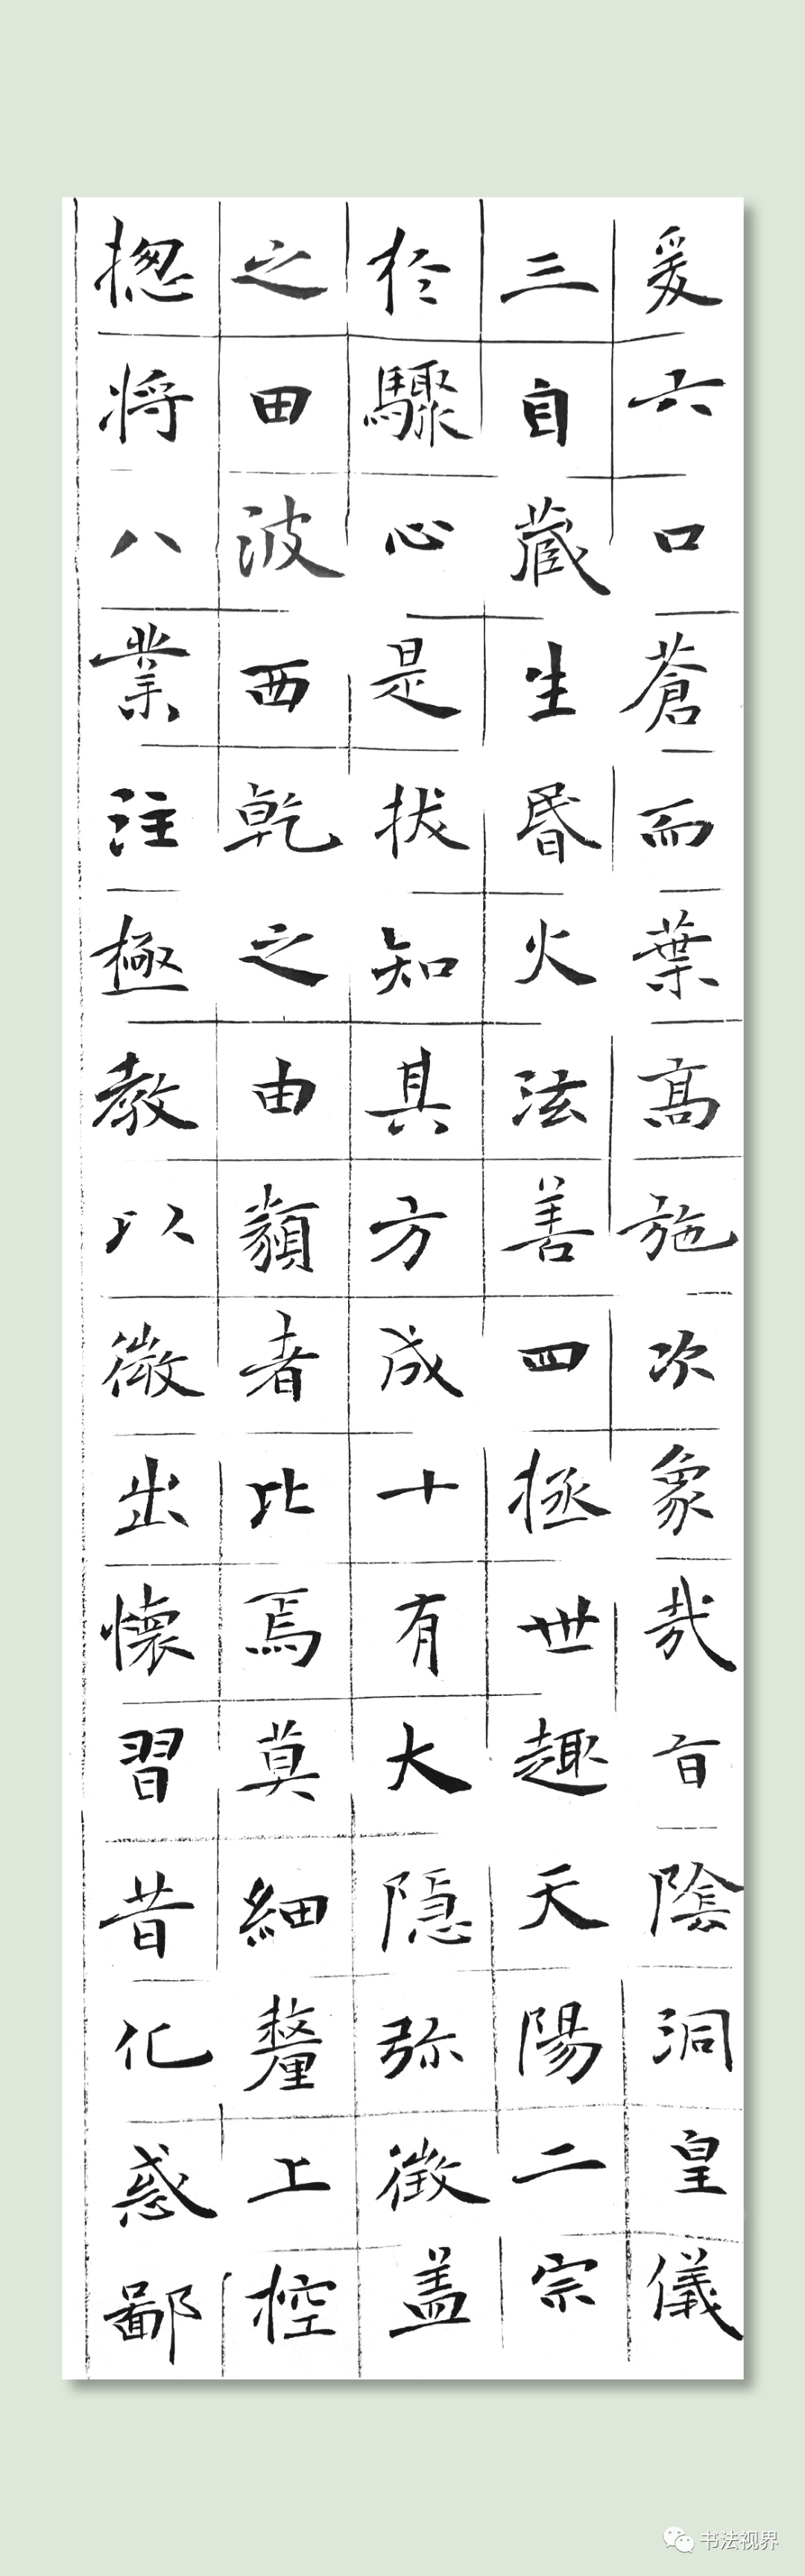 爰六口蒼而葉高施次象哉盲陰洞皇儀
三自蔵生昬火法善四拯世趣天陽二宗
於驟心是拔知其方成十有大隠弥徵盖
之田波西乾之由類者比焉莫細釐上控
揔将八業注極教以微出懐習昔化惑鄙
书法视界